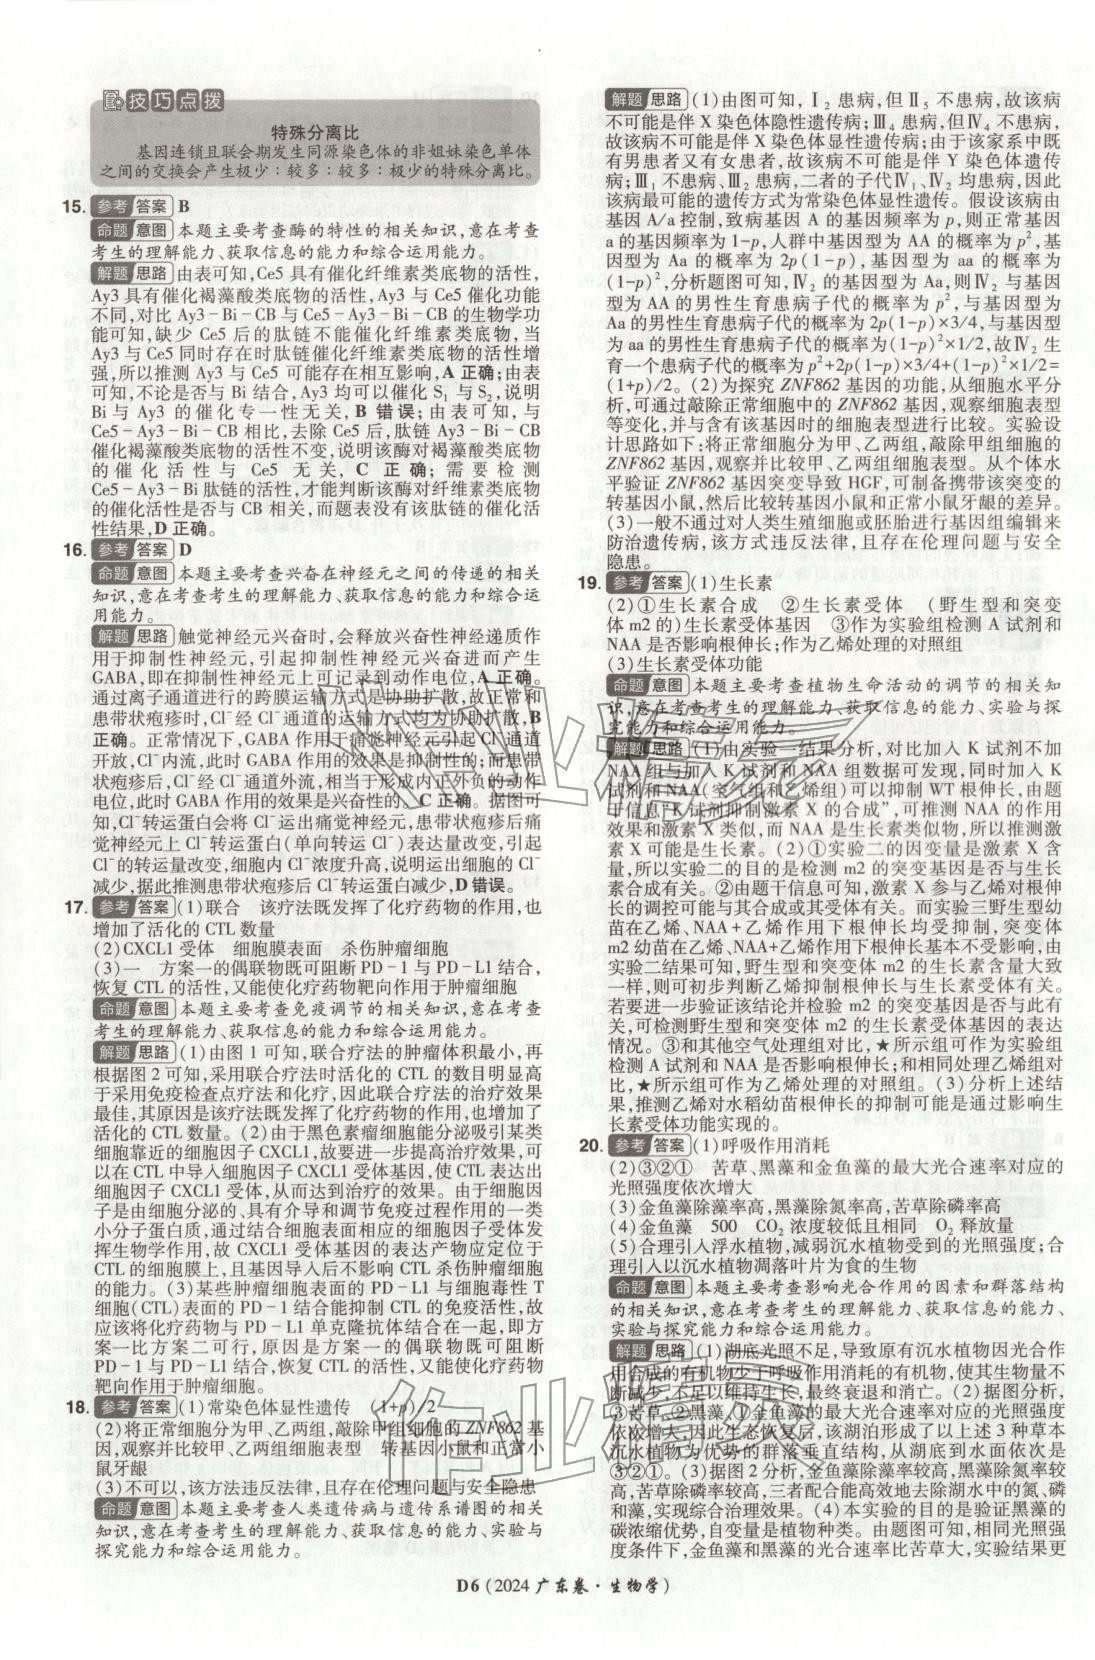 技巧点拨
特殊分离比
基因连锁且联会期发生同源染色体的非姐妹染色单体
之间的交换会产生极少∶较多∶较多∶极少的特殊分离比。
15. 参考 答案 B
命题 意图 本题主要考查酶的特性的相关知识,意在考查
考生的理解能力、获取信息的能力和综合运用能力。
解题 思路 由表可知,Ce5 具有催化纤维素类底物的活性,
Ay3 具有催化褐藻酸类底物的活性,Ay3 与 Ce5 催化功能
不同,对比 Ay3-Bi-CB 与 Ce5-Ay3-Bi-CB 的生物学功
能可知,缺少 Ce5 后的肽链不能催化纤维素类底物,当
Ay3 与 Ce5 同时存在时肽链催化纤维素类底物的活性增
强,所以推测 Ay3 与 Ce5 可能存在相互影响,A 正确;由表
可知,不论是否与 Bi 结合,Ay3 均可以催化 S₁ 与 S₂,说明
Bi 与 Ay3 的催化专一性无关,B 错误;由表可知,与
Ce5-Ay3-Bi-CB 相比,去除 Ce5 后,肽链 Ay3-Bi-CB
催化褐藻酸类底物的活性不变,说明该酶对褐藻酸类底物
的催化活性与 Ce5 无关,C 正确;需要检测
Ce5-Ay3-Bi 肽链的活性,才能判断该酶对纤维素类底物
的催化活性是否与 CB 相关,而题表没有该肽链的催化活
性结果,D 正确。
16. 参考 答案 D
命题 意图 本题主要考查兴奋在神经元之间的传递的相关
知识,意在考查考生的理解能力、获取信息的能力和综合运
用能力。
解题 思路 触觉神经元兴奋时,会释放兴奋性神经递质作
用于抑制性神经元,引起抑制性神经元兴奋进而产生
GABA,即在抑制性神经元上可记录到动作电位,A 正确。
通过离子通道进行的跨膜运输方式是协助扩散,故正常和
患带状疱疹时,Cl⁻ 经 Cl⁻ 通道的运输方式均为协助扩散,B
正确。正常情况下,GABA 作用于痛觉神经元引起 Cl⁻ 通道
开放,Cl⁻ 内流,此时 GABA 作用的效果是抑制性的;而患带
状疱疹后,Cl⁻ 经 Cl⁻ 通道外流,相当于形成内正外负的动作
电位,此时 GABA 作用的效果是兴奋性的。C 正确。据图可
知,Cl⁻ 转运蛋白会将 Cl⁻ 运出痛觉神经元,患带状疱疹后痛
觉神经元上 Cl⁻ 转运蛋白(单向转运 Cl⁻)表达量改变,引起
Cl⁻ 的转运量改变,细胞内 Cl⁻ 浓度升高,说明运出细胞的 Cl⁻
减少,据此推测患带状疱疹后 Cl⁻ 转运蛋白减少,D 错误。
17. 参考 答案 (1)联合 该疗法既发挥了化疗药物的作用,也
增加了活化的 CTL 数量
(2)CXCL1 受体 细胞膜表面 杀伤肿瘤细胞
(3)一 方案一的偶联物既可阻断 PD-1 与 PD-L1 结合,
恢复 CTL 的活性,又能使化疗药物靶向作用于肿瘤细胞
命题 意图 本题主要考查免疫调节的相关知识,意在考查
考生的理解能力、获取信息的能力和综合运用能力。
解题 思路 (1)由图 1 可知,联合疗法的肿瘤体积最小,再
根据图 2 可知,采用联合疗法时活化的 CTL 的数目明显高
于采用免疫检查点疗法和化疗,因此联合疗法的治疗效果
最佳,其原因是该疗法既发挥了化疗药物的作用,也增加了
活化的 CTL 数量。(2)由于黑色素瘤细胞能分泌吸引某类
细胞靠近的细胞因子 CXCL1,故要进一步提高治疗效果,可
以在 CTL 中导入细胞因子 CXCL1 受体基因,使 CTL 表达出
细胞因子 CXCL1 受体,从而达到治疗的效果。由于细胞因
子是由细胞分泌的、具有介导和调节免疫过程作用的一类
小分子蛋白质,通过结合细胞表面相应的细胞因子受体发
挥生物学作用,故 CXCL1 受体基因的表达产物应定位于
CTL 的细胞膜上,且基因导入后不影响 CTL 杀伤肿瘤细胞
的能力。(3)某些肿瘤细胞表面的 PD-L1 与细胞毒性 T
细胞(CTL)表面的 PD-1 结合能抑制 CTL 的免疫活性,故
应该将化疗药物与 PD-L1 单克隆抗体结合在一起,即方
案一比方案二可行,原因是方案一的偶联物既可阻断
PD-1 与 PD-L1 结合,恢复 CTL 的活性,又能使化疗药物
靶向作用于肿瘤细胞。
18. 参考 答案 (1)常染色体显性遗传 (1+p)/2
(2)将正常细胞分为甲、乙两组,敲除甲组细胞的 ZNF862 基
因,观察并比较甲、乙两组细胞表型 转基因小鼠和正常小
鼠牙龈
(3)不可以,该方法违反法律,且存在伦理问题与安全隐患
命题 意图 本题主要考查人类遗传病与遗传系谱图的相关
知识,意在考查考生的理解能力、获取信息的能力、实验与
探究能力和综合运用能力。
解题 思路 (1)由图可知,Ⅰ₂ 患病,但Ⅱ₅ 不患病,故该病
不可能是伴 X 染色体隐性遗传病;Ⅲ₄ 患病,但Ⅳ₄ 不患病,
故该病不可能是伴 X 染色体显性遗传病;由于该家系中既
有男患者又有女患者,故该病不可能是伴 Y 染色体遗传
病;Ⅲ₁ 不患病、Ⅲ₂ 患病,二者的子代Ⅳ₁、Ⅳ₂ 均患病,因此
该病最可能的遗传方式为常染色体显性遗传。假设该病由
基因 A/a 控制,致病基因 A 的基因频率为 p,则正常基因
a 的基因频率为 1-p,人群中基因型为 AA 的概率为 p²,基
因型为 Aa 的概率为 2p(1-p),基因型为 aa 的概率为
(1-p)²,分析题图可知,Ⅳ₂ 的基因型为 Aa,则Ⅳ₂ 与基因
型为 AA 的男性生育患病子代的概率为 p²,与基因型为
Aa 的男性生育患病子代的概率为 2p(1-p)×3/4,与基因型
为 aa 的男性生育患病子代的概率为(1-p)²×1/2,故Ⅳ₂ 生
育一个患病子代的概率为 p²+2p(1-p)×3/4+(1-p)²×1/2=
(1+p)/2。(2)为探究 ZNF862 基因的功能,从细胞水平分
析,可通过敲除正常细胞中的 ZNF862 基因,观察细胞表型
等变化,并与含有该基因时的细胞表型进行比较。实验设
计思路如下:将正常细胞分为甲、乙两组,敲除甲组细胞的
ZNF862 基因,观察并比较甲、乙两组细胞表型。从个体水
平验证 ZNF862 基因突变导致 HGF,可制备携带该突变的
转基因小鼠,然后比较转基因小鼠和正常小鼠牙龈的差异。
(3)一般不通过对人类生殖细胞或胚胎进行基因组编辑来
防治遗传病,该方式违反法律,且存在伦理问题与安全
隐患。
19. 参考 答案 (1)生长素
(2)①生长素合成 ②生长素受体 (野生型和突变
体 m2 的)生长素受体基因 ③作为实验组检测 A 试剂和
NAA 是否影响根伸长;作为乙烯处理的对照组
(3)生长素受体功能
命题 意图 本题主要考查植物生命活动的调节的相关知
识,意在考查考生的理解能力、获取信息的能力、实验与探
究能力和综合运用能力。
解题 思路 (1)由实验一结果分析,对比加入 K 试剂不加
NAA 组与加入 K 试剂和 NAA 组数据可发现,同时加入 K
试剂和 NAA(空气组和乙烯组)可以抑制 WT 根伸长,由题
干信息“K 试剂抑制激素 X 的合成”,可推测 NAA 的作用
效果和激素 X 类似,而 NAA 是生长素类似物,所以推测激
素 X 可能是生长素。(2)①实验二的因变量是激素 X 含
量,所以实验二的目的是检测 m2 的突变基因是否与生长
素合成有关。②由题干信息可知,激素 X 参与乙烯对根伸
长的调控可能与其合成或其受体有关。而实验三野生型幼
苗在乙烯、NAA+乙烯作用下根伸长均受抑制,突变体
m2 幼苗在乙烯、NAA+乙烯作用下根伸长基本不受影响,由
实验二结果可知,野生型和突变体 m2 的生长素含量大致
一样,则可初步判断乙烯抑制根伸长与生长素受体有关。
若要进一步验证该结论并检验 m2 的突变基因是否与此有
关,可检测野生型和突变体 m2 的生长素受体基因的表达
情况。③和其他空气处理组对比,★所示组可作为实验组
检测 A 试剂和 NAA 是否影响根伸长;和相同处理乙烯组对
比,★所示组可作为乙烯处理的对照组。(3)分析上述结
果,推测乙烯对水稻幼苗根伸长的抑制可能是通过影响生
长素受体功能实现的。
20. 参考 答案 (1)呼吸作用消耗
(2)③②① 苦草、黑藻和金鱼藻的最大光合速率对应的
光照强度依次增大
(3)金鱼藻除藻率高,黑藻除氮率高,苦草除磷率高
(4)金鱼藻 500 CO₂ 浓度较低且相同 O₂ 释放量
(5)合理引入浮水植物,减弱沉水植物受到的光照强度;合
理引入以沉水植物凋落叶片为食的生物
命题 意图 本题主要考查影响光合作用的因素和群落结构
的相关知识,意在考查考生的理解能力、获取信息的能力、
实验与探究能力和综合运用能力。
解题 思路 (1)湖底光照不足,导致原有沉水植物因光合作
用合成的有机物少于呼吸作用消耗的有机物,使其生物量不
断减少,不足以维持生长,最终衰退和消亡。(2)据图分析,
③苦草、②黑藻、①金鱼藻的最大光合速率对应的光照强度
依次增大,因此生态恢复后,该湖泊形成了以上述 3 种草本
沉水植物为优势的群落垂直结构,从湖底到水面依次是
③②①。(3)据图 2 分析,金鱼藻除藻率较高,黑藻除氮率较
高,苦草除磷率较高,三者配合能高效地去除湖水中的氮、磷
和藻,实现综合治理效果。(4)本实验的目的是验证黑藻的
碳浓缩优势,自变量是植物种类。由题图可知,相同光照强
度条件下,金鱼藻和黑藻的光合速率比苦草大,实验结果更
D6(2024 广东卷·生物学)